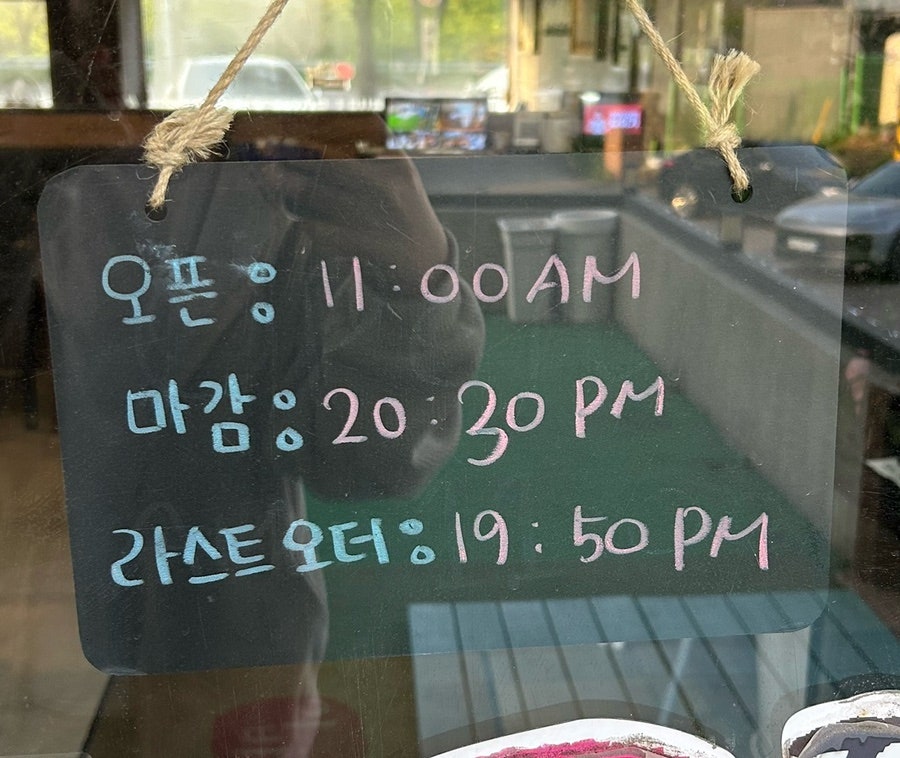 오픈: 11:00 AM
마감: 20:30 PM
라스트오더: 19:50 PM